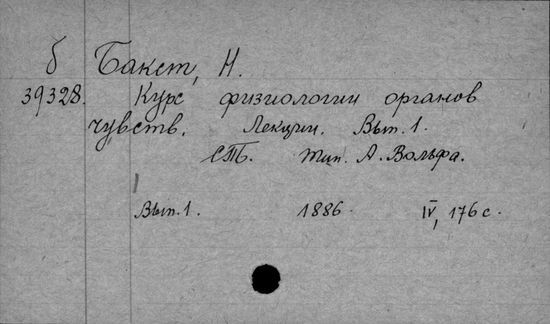 б Бакст, Н.
39328. Курс физиологии органов
чувств. Лекции. Вып. 1.
СПб. тип. А. Вольфа.
Вып. 1. 1886. IV, 176 с.